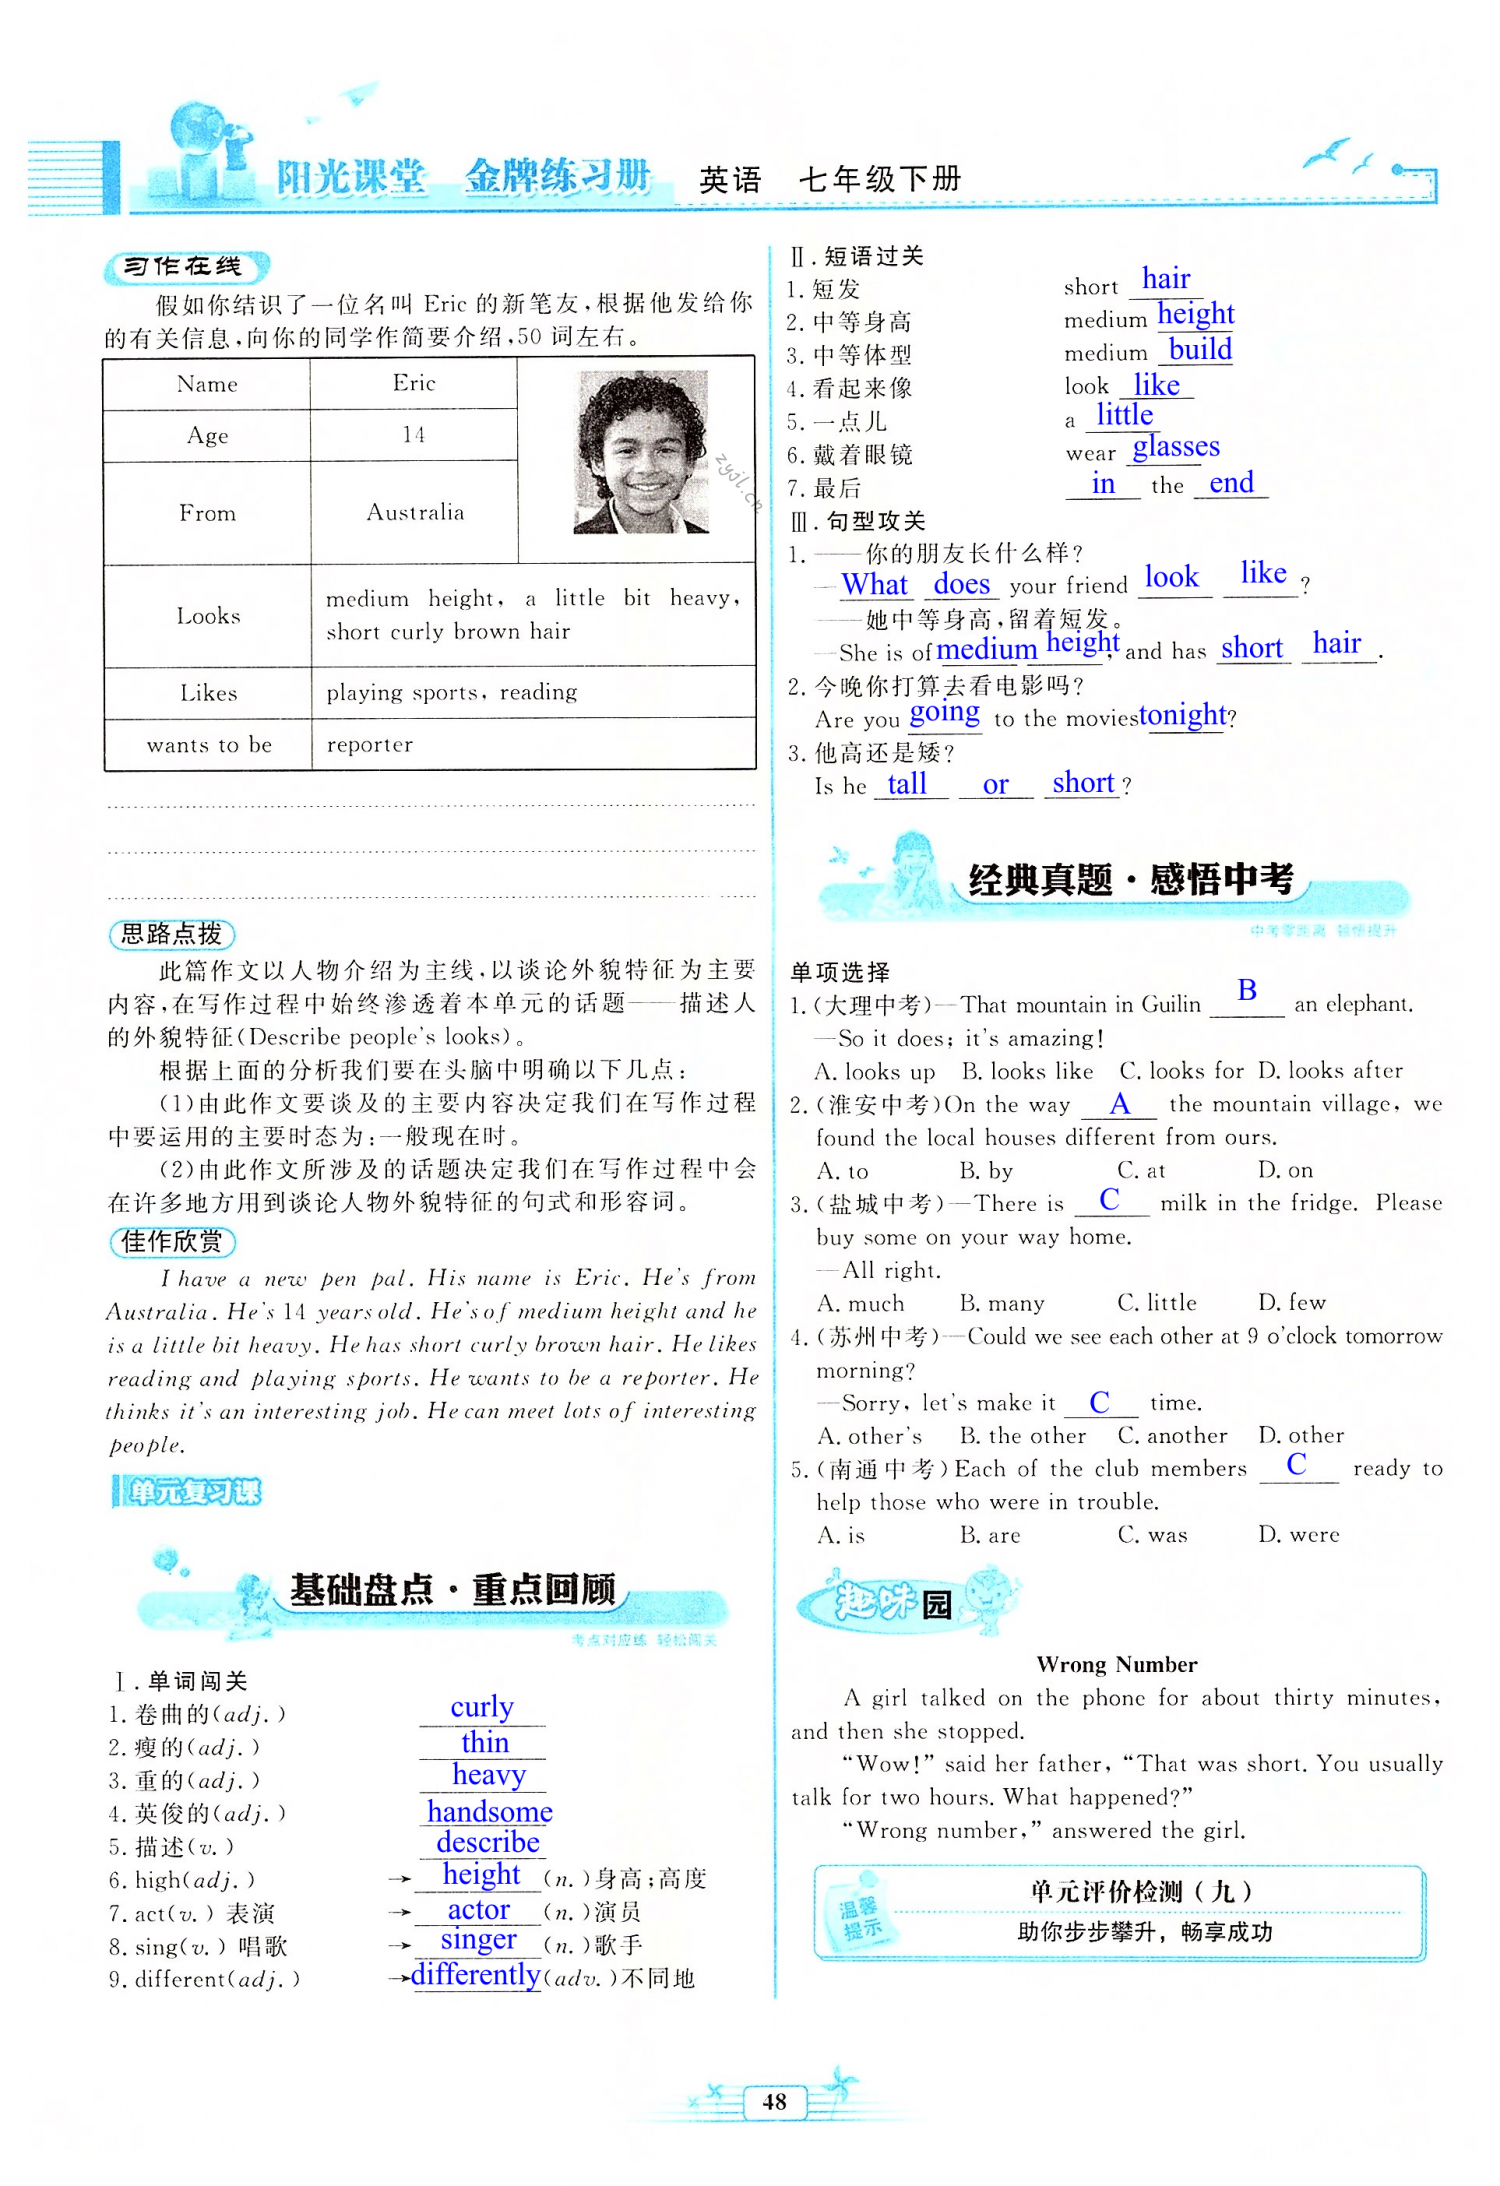 阳光课堂 金牌练习册 英语 七年级下册
习作在线
假如你结识了一位名叫 Eric 的新笔友,根据他发给你
的有关信息,向你的同学作简要介绍,50 词左右。
Name Eric
Age 14
From Australia
Looks medium height, a little bit heavy,
short curly brown hair
Likes playing sports, reading
wants to be reporter
zyjl.cn
思路点拨
此篇作文以人物介绍为主线,以谈论外貌特征为主要
内容,在写作过程中始终渗透着本单元的话题——描述人
的外貌特征(Describe people's looks)。
根据上面的分析我们要在头脑中明确以下几点:
(1)由此作文要谈及的主要内容决定我们在写作过程
中要运用的主要时态为:一般现在时。
(2)由此作文所涉及的话题决定我们在写作过程中会
在许多地方用到谈论人物外貌特征的句式和形容词。
佳作欣赏
I have a new pen pal. His name is Eric. He's from
Australia. He's 14 years old. He's of medium height and he
is a little bit heavy. He has short curly brown hair. He likes
reading and playing sports. He wants to be a reporter. He
thinks it's an interesting job. He can meet lots of interesting
people.
单元复习课
基础盘点·重点回顾
考点对应练 轻松闯关
Ⅰ.单词闯关
1.卷曲的(adj.) curly
2.瘦的(adj.) thin
3.重的(adj.) heavy
4.英俊的(adj.) handsome
5.描述(v.) describe
6. high(adj.) → height (n.)身高;高度
7. act(v.) 表演 → actor (n.)演员
8. sing(v.) 唱歌 → singer (n.)歌手
9. different(adj.) →differently(adv.)不同地
Ⅱ.短语过关
1.短发 short hair
2.中等身高 medium height
3.中等体型 medium build
4.看起来像 look like
5.一点儿 a little
6.戴着眼镜 wear glasses
7.最后 in the end
Ⅲ.句型攻关
1.——你的朋友长什么样?
—What does your friend look like ?
——她中等身高,留着短发。
—She is of medium height, and has short hair .
2.今晚你打算去看电影吗?
Are you going to the movies tonight?
3.他高还是矮?
Is he tall or short ?
经典真题·感悟中考
中考零距离 领悟提升
单项选择
1.(大理中考)—That mountain in Guilin B an elephant.
—So it does; it's amazing!
A. looks up B. looks like C. looks for D. looks after
2.(淮安中考)On the way A the mountain village, we
found the local houses different from ours.
A. to B. by C. at D. on
3.(盐城中考)—There is C milk in the fridge. Please
buy some on your way home.
—All right.
A. much B. many C. little D. few
4.(苏州中考)—Could we see each other at 9 o'clock tomorrow
morning?
—Sorry, let's make it C time.
A. other's B. the other C. another D. other
5.(南通中考)Each of the club members C ready to
help those who were in trouble.
A. is B. are C. was D. were
趣味园
Wrong Number
A girl talked on the phone for about thirty minutes,
and then she stopped.
“Wow!” said her father, “That was short. You usually
talk for two hours. What happened?”
“Wrong number,” answered the girl.
温馨
提示
单元评价检测(九)
助你步步攀升,畅享成功
48